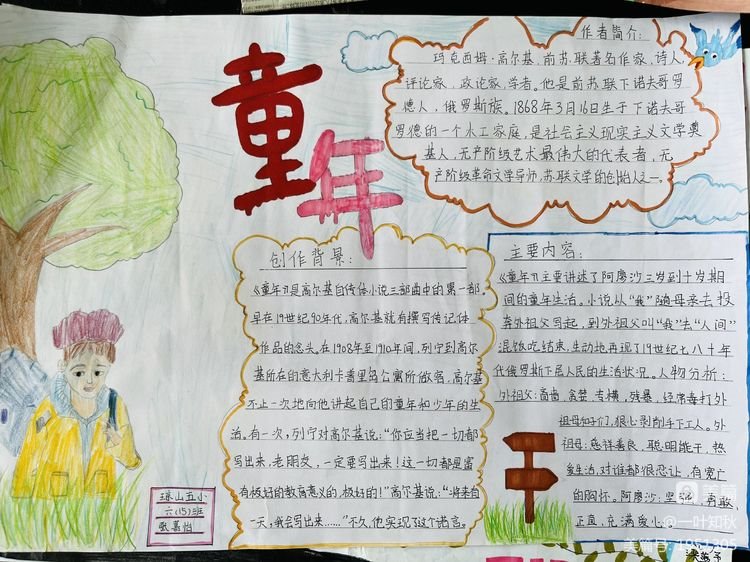 童年
作者简介:
玛克西姆·高尔基,前苏联著名作家,诗人,
评论家,政论家,学者。他是前苏联下诺夫哥罗
德人,俄罗斯族。1868年3月16日生于下诺夫哥
罗德的一个木工家庭,是社会主义现实主义文学奠
基人,无产阶级艺术最伟大的代表者,无
产阶级革命文学导师,苏联文学的创始人之一。
创作背景:
《童年》是高尔基自传体小说三部曲中的第一部。
早在19世纪90年代,高尔基就有撰写传记体
作品的念头。在1908年至1910年间,列宁到高尔
基所在的意大利卡普里岛公寓所做客,高尔基
不止一次地向他讲起自己的童年和少年的生
活。有一次,列宁对高尔基说:“你应当把一切都
写出来,老朋友,一定要写出来!这一切都是富
有极好的教育意义的,极好的!”高尔基说:“将来有
一天,我会写出来……”不久,他实现了这个诺言。
主要内容:
《童年》主要讲述了阿廖沙三岁到十岁期
间的童年生活。小说从“我”随母亲去投
奔外祖父写起,到外祖父叫“我”去“人间”
混饭吃结束,生动地再现了19世纪七八十年
代俄罗斯下层人民的生活状况。人物分析:
外祖父:吝啬,贪婪,专横,残暴,经常毒打外
祖母和孩子们,狠心剥削手下工人。外
祖母:慈祥善良,聪明能干,热
爱生活,对谁都很忍让,有宽广
的胸怀。阿廖沙:坚强,勇敢,
正直,充满爱心。
琼山五小
六(15)班
歌慕怡
美篇
@一叶知秋
美篇号:1051305